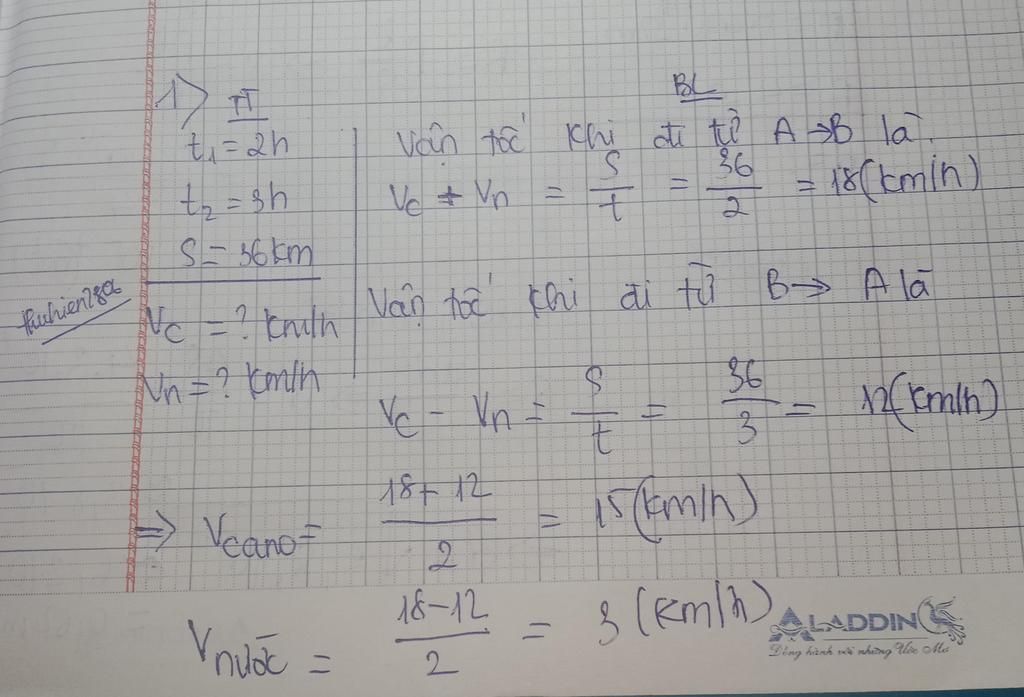 1) TT
t₁ = 2h
t₂ = 3h
S = 36 km
Vc = ? km/h
Vn = ? km/h
BL
Vận tốc khi đi từ A → B là
Vc + Vn = S/t = 36/2 = 18 (km/h)
Vận tốc khi đi từ B → A là
Vc - Vn = S/t = 36/3 = 12 (km/h)
⇒ Vcano = (18 + 12)/2 = 15 (km/h)
Vnước = (18 - 12)/2 = 3 (km/h)
ALADDIN
Đồng hành với những Ước Mơ